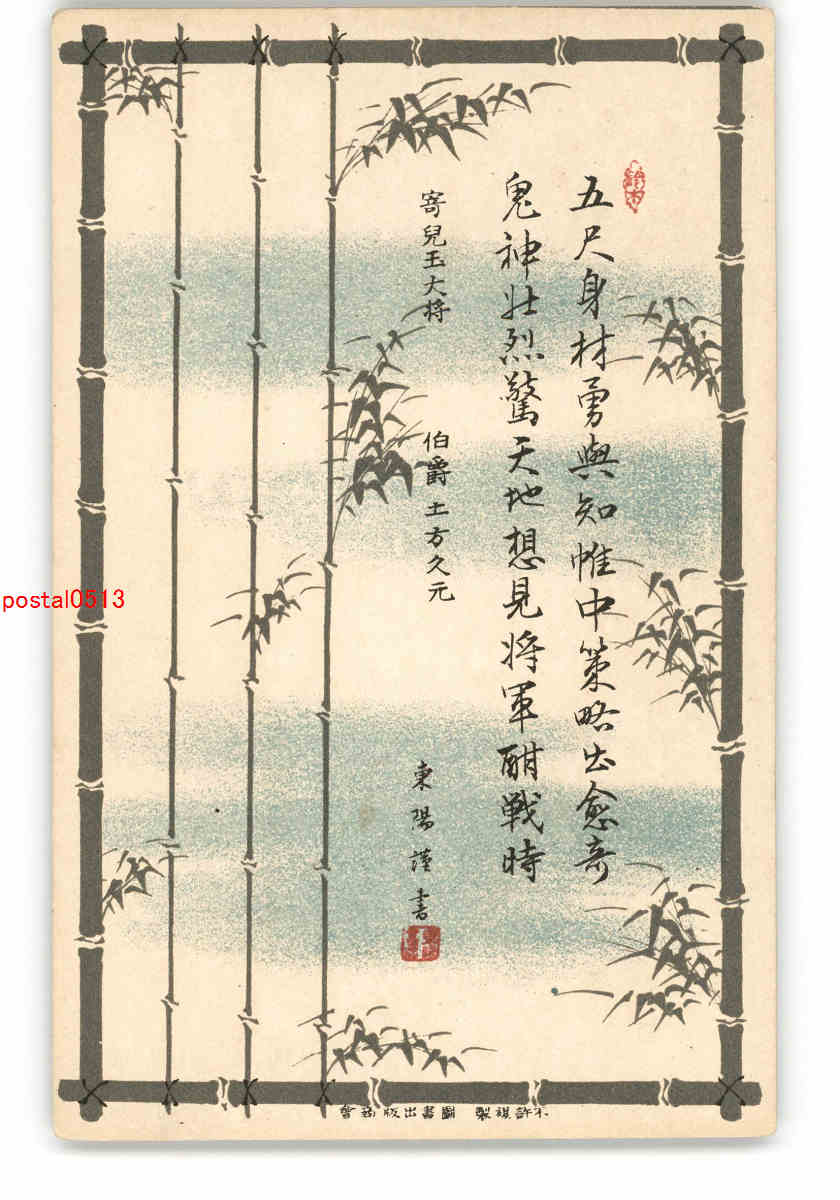 五尺身材勇與知帷中策略出愈奇
鬼神壮烈驚天地想見将軍酣戦時
寄兒玉大将
伯爵土方久元
東陽謹書
不許複製 圖書出版協會
postal0513